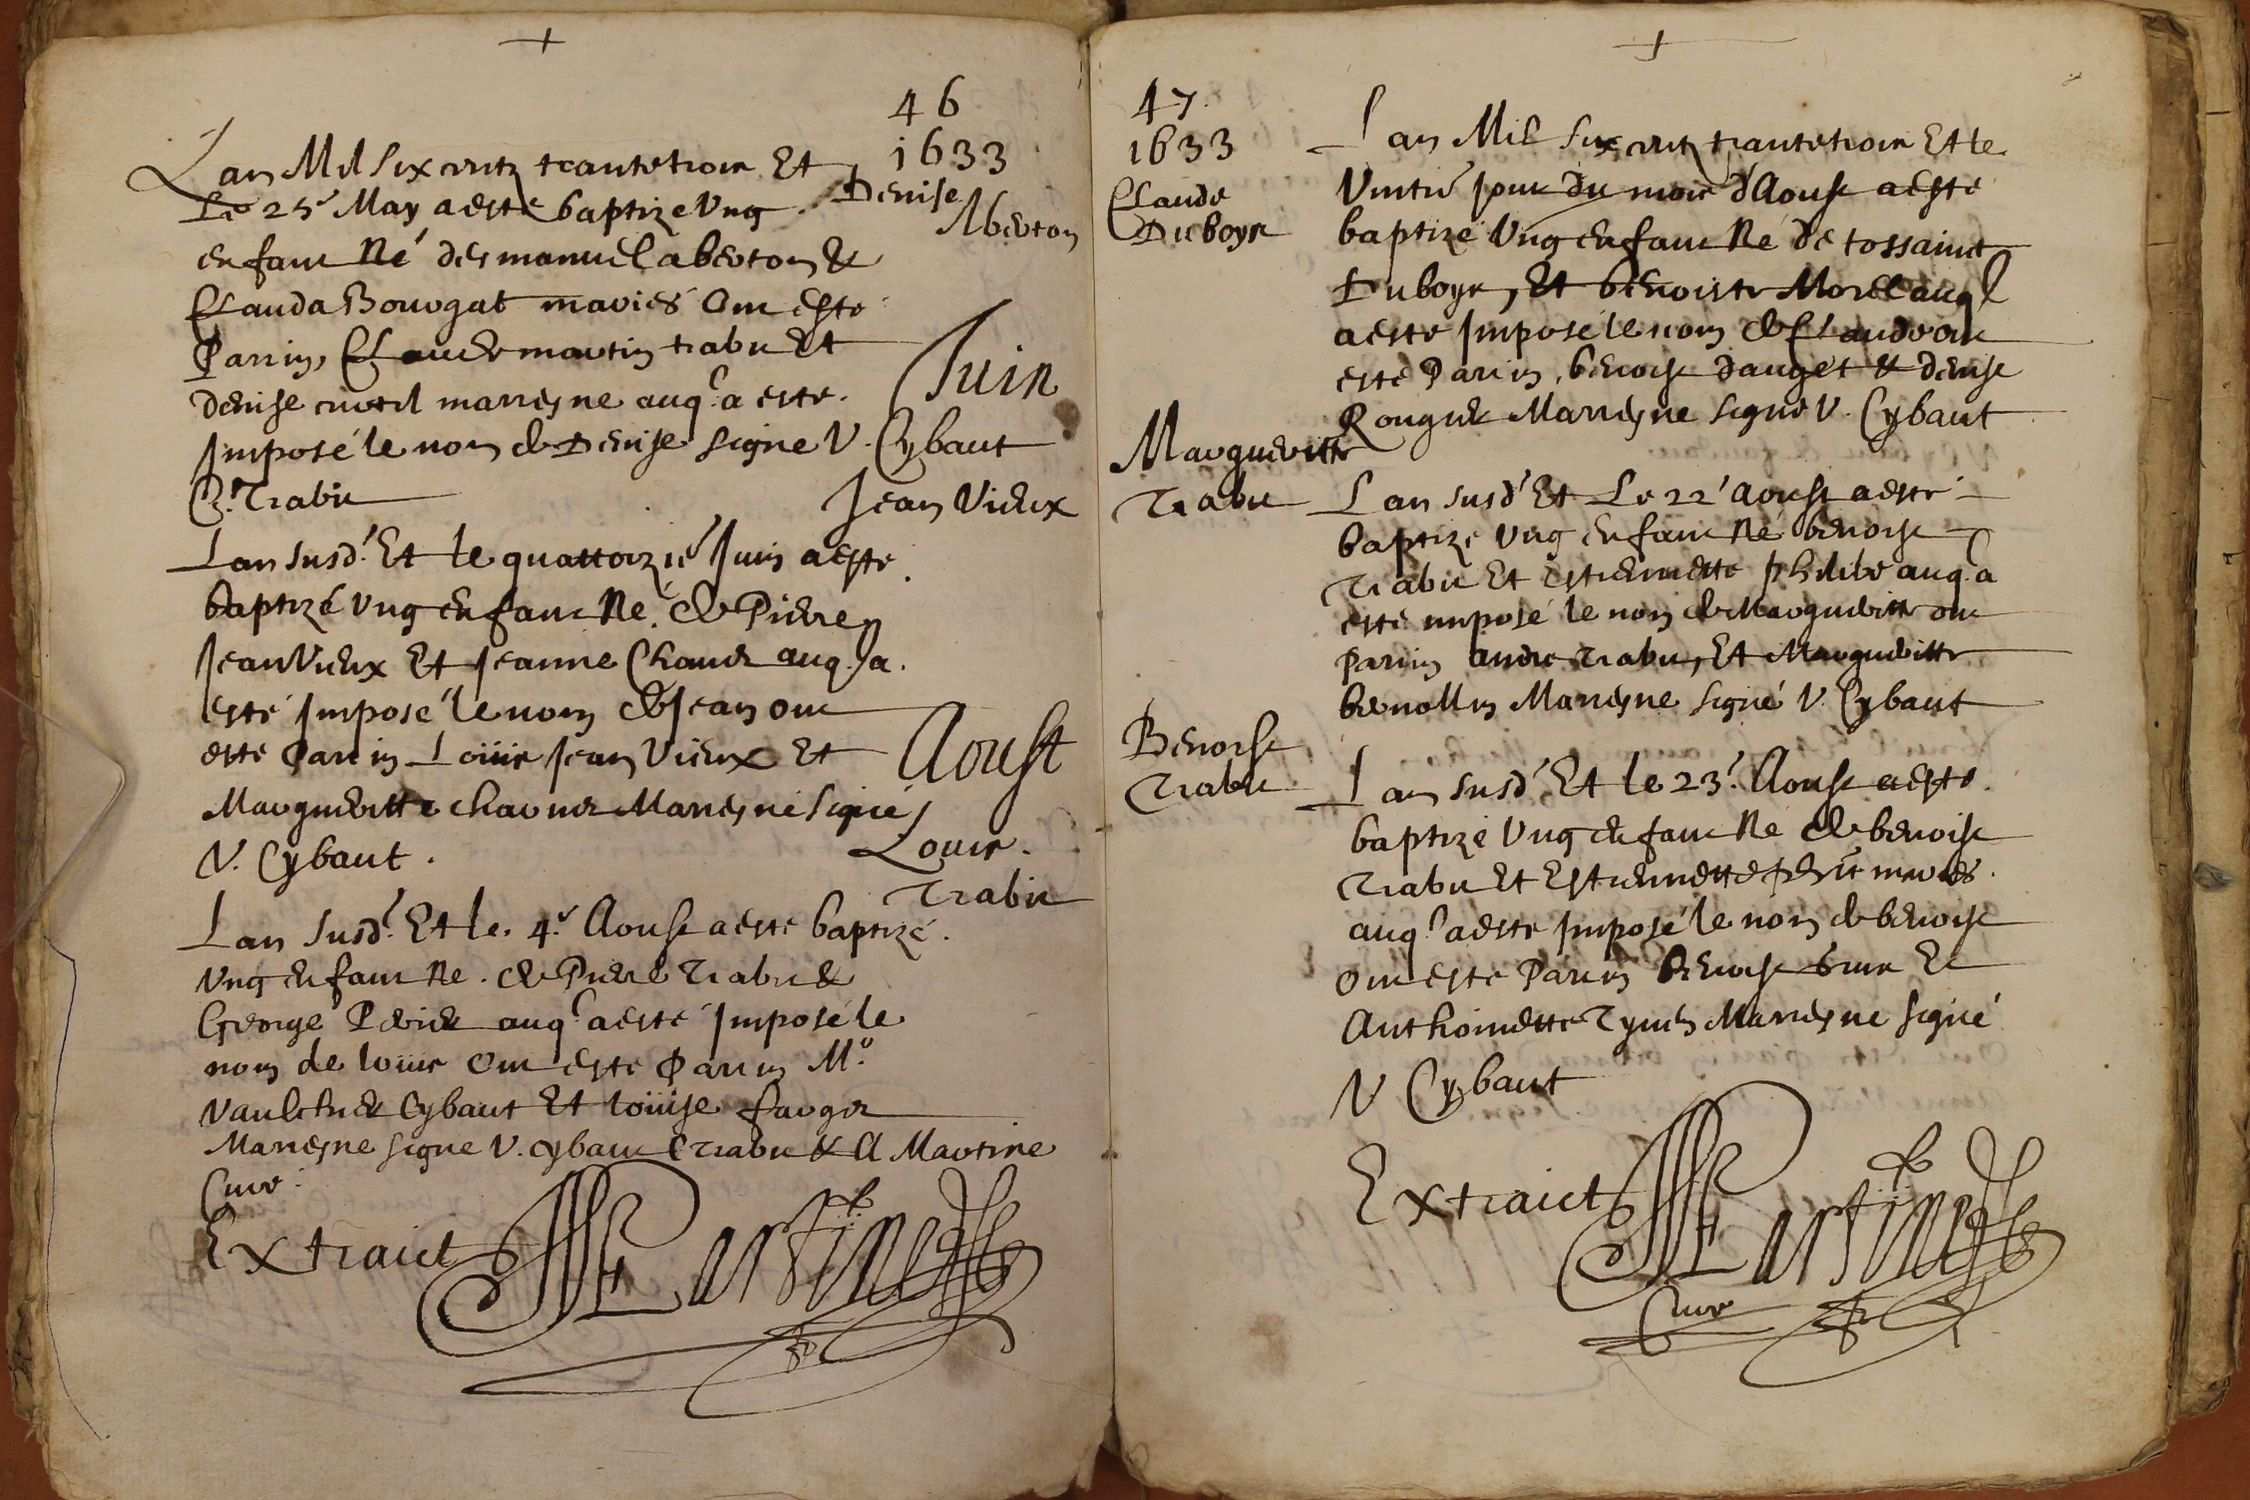 46
1633
Lan Mil six centz trante trois Et
Le 25e May a esté baptize Ung
Denise Aberton
enfant Né de manuel aberton &
Clauda Bouvgat mariés Ont esté
Parrin, Claude martin trabu Et
Denise marreyne auql. a este
Juin
Imposé le nom de Denise signé V. Cybaut
C. Trabu
Jean Vieux
Lan susd. Et le quattorzié Juin a esté
baptizé Ung enfant Né. de Pierre
Jean Vieux Et Jeanne auql a
esté Imposé le nom de Jean ont
Aoust
esté Parrin Louis Jean Vieux Et
Margueritte Marreyne signé
V. Cybaut.
Louis
Trabu
Lan susd. Et le. 4.e Aoust a esté baptizé.
Ung enfant Né. de Pierre Trabu &
George Perier auql. a esté Imposé le
nom de louis Ont esté Parrin M.e
Vaulchier Cybaut Et louise farger
Marreyne signe V. cybaut C trabu & A Martine
Curé
Extraict Martine
47.
1633
Claude Duboys
Lan Mil six centz trante trois Et le
Vintié jour du mois d'Aoust a esté
baptizé Ung enfant Né de tossaint
Duboys, Et benoiste Morel auql
a esté Imposé le nom de Claude ont
esté Parrin, benoist dauget & denise
Rougier Marreyne signé V. Cybaut
Margueritte
Trabu
Lan susd. Et Le 22e Aoust a esté
baptize Ung enfant Né benoist
Trabu Et Estiennette philibe auql. a
esté imposé le nom de Margueritte ont
Parrin André Trabu, Et Margueritte
Marreyne signé V. Cybaut
Benoist
Trabu
Lan susd. Et le 23e. Aoust a esté.
baptizé Ung enfant Né de benoist
Trabu Et Estiennette mariés.
auql. a esté Imposé le nom de benoist
Ont esté Parrin Benoist Et
Anthoinette Marreyne signé
V Cybaut
Extraict Martine
Curé